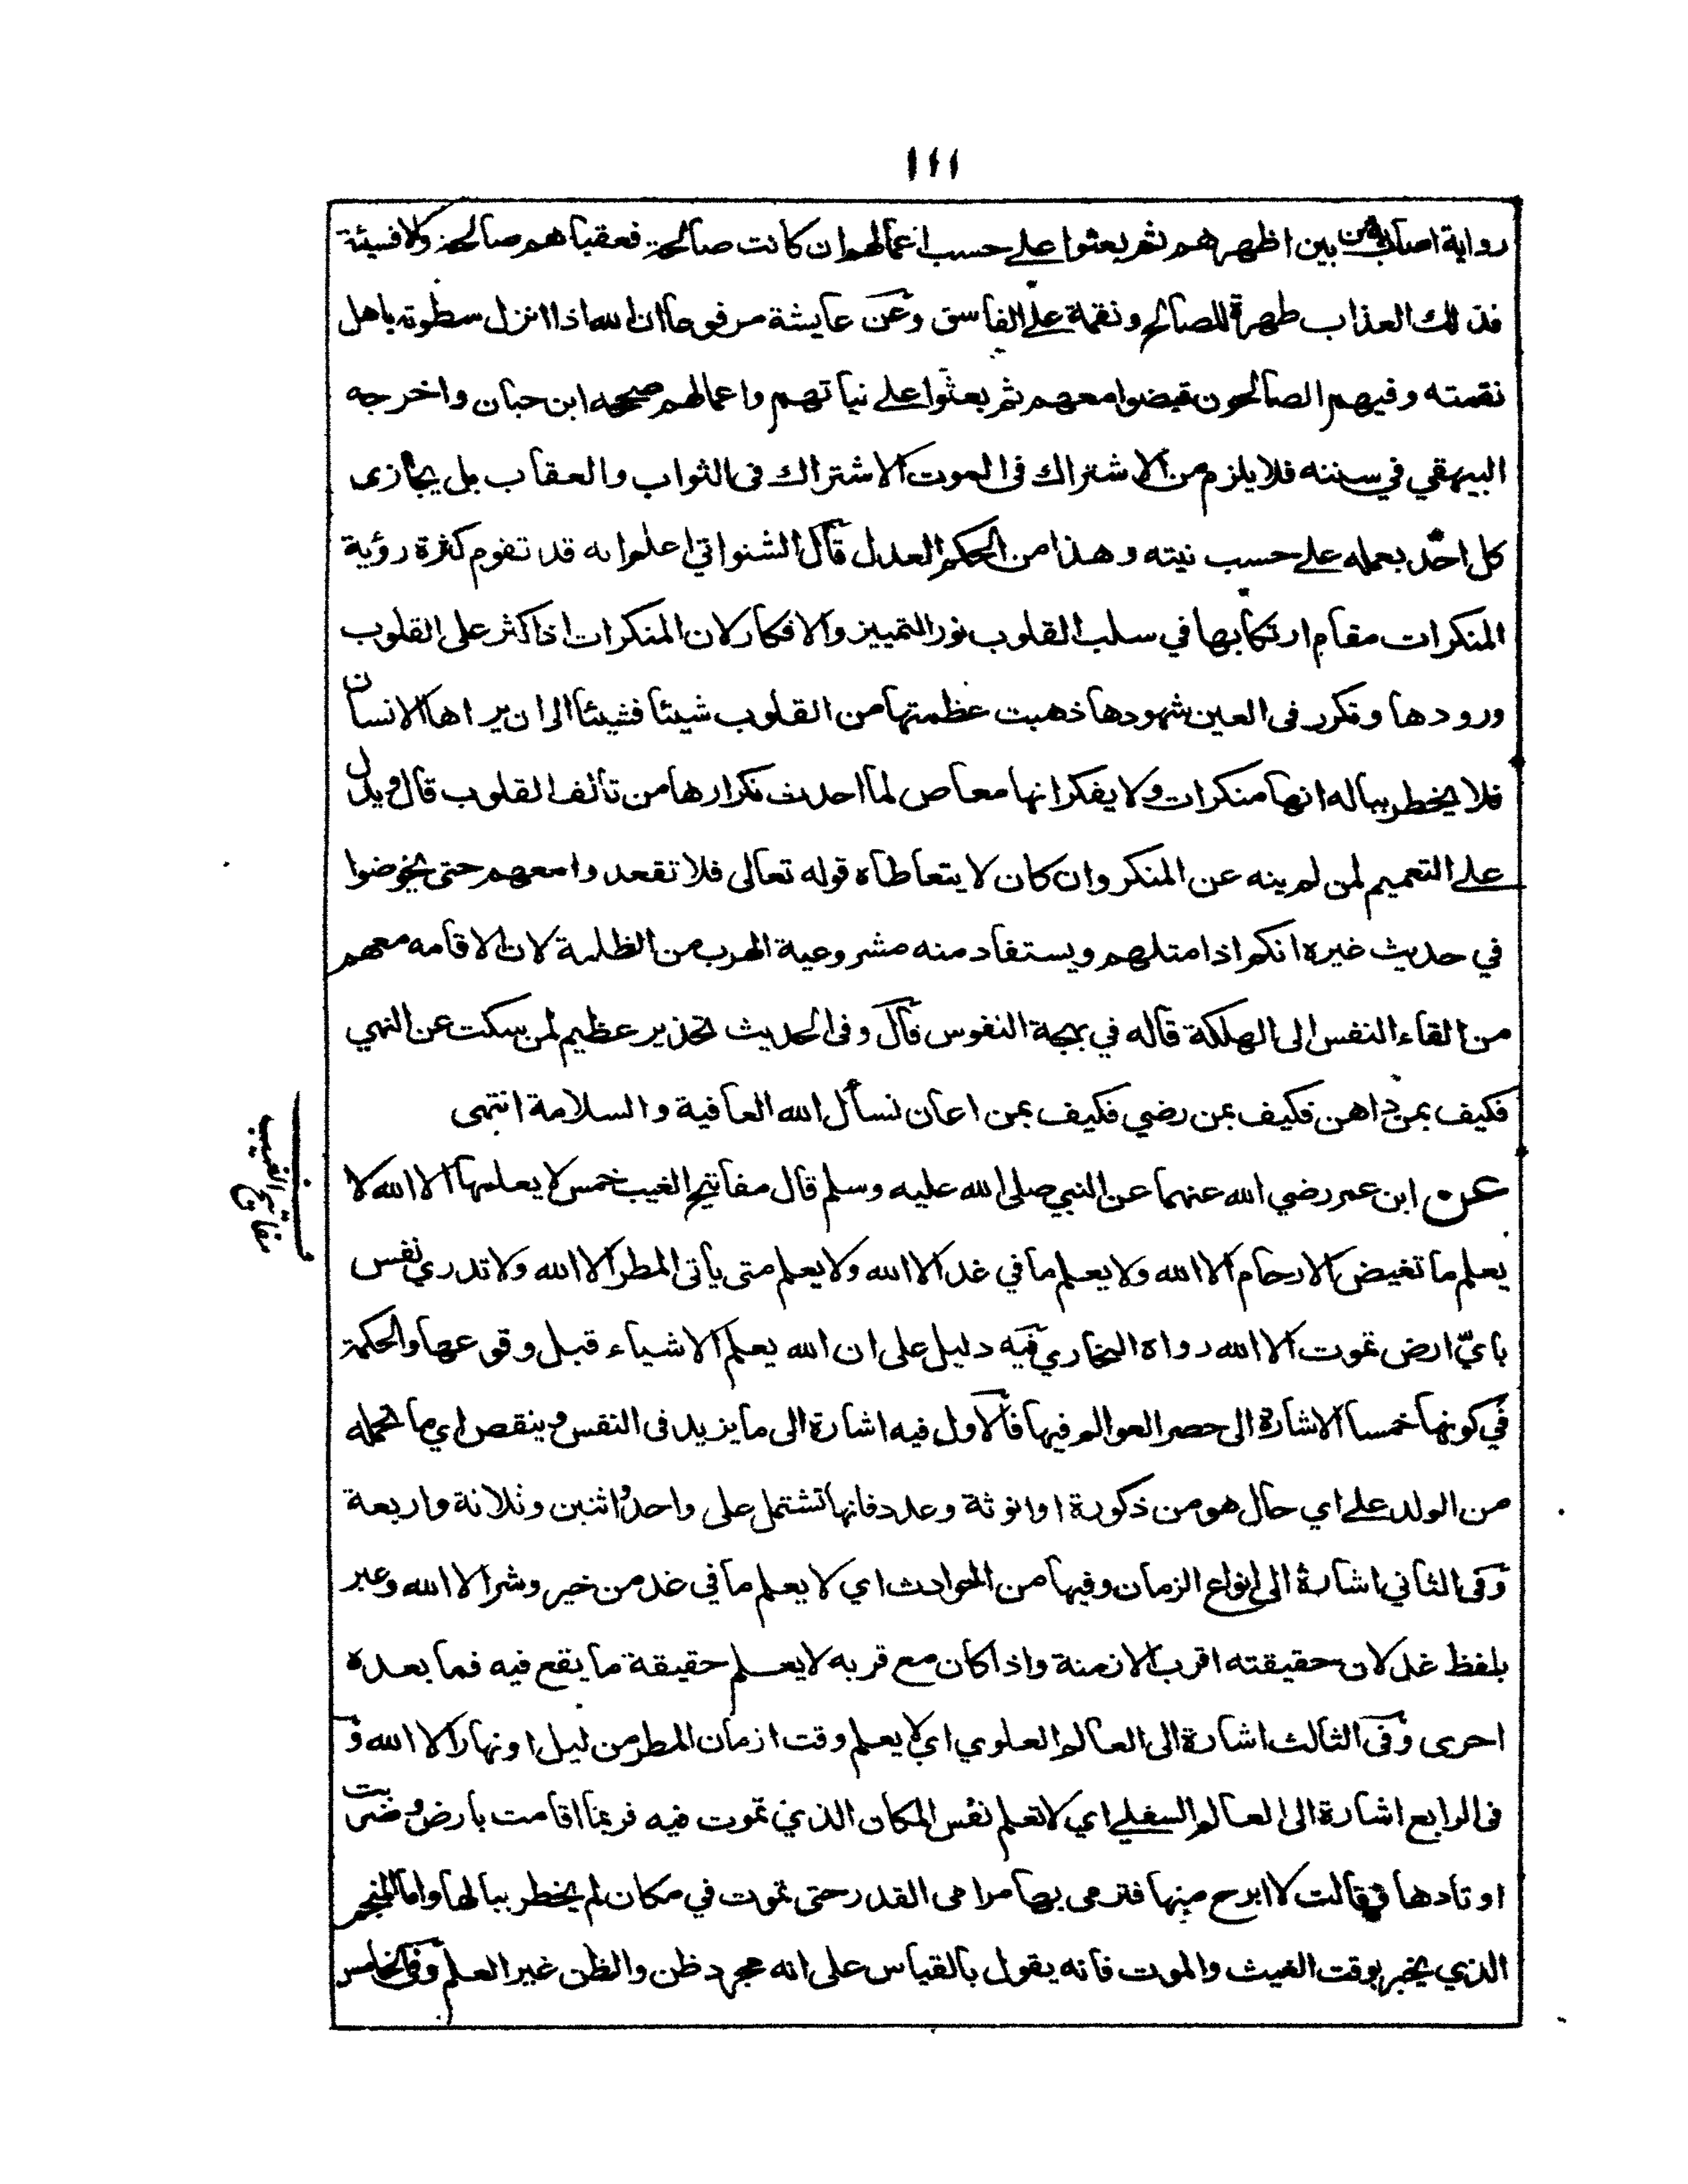 ١١١
رواية اصاب من بين اظهرهم ثم بعثوا على حسب اعمالهم ان كانت صالحة فعقباهم صالحة والا فسيئة
فذلك العذاب طهرة للصالح ونقمة على الفاسق وعن عايشة مرفوعا ان الله اذا انزل سطوته باهل
نقمته وفيهم الصالحون قبضوا معهم ثم بعثوا على نياتهم واعمالهم صححه ابن حبان واخرجه
البيهقي في سننه فلا يلزم من الاشتراك في الموت الاشتراك في الثواب والعقاب بل يجازى
كل احد بعمله على حسب نيته وهذا من الحكم العدل قال الشنواني اعلم انه قد تقوم كثرة رؤية
المنكرات مقام ارتكابها في سلب القلوب نور التمييز والافكار لان المنكرات اذا كثر على القلوب
ورودها وتكرر في العين شهودها ذهبت عظمتها من القلوب شيئا فشيئا الى ان يراها الانسان
فلا يخطر بباله انها منكرات ولا يفكر انها معاص لما احدث تكرارها من تألف القلوب قال ويدل
على التعميم لمن لم ينه عن المنكر وان كان لا يتعاطاه قوله تعالى فلا تقعدوا معهم حتى يخوضوا
في حديث غيره انكم اذا مثلهم ويستفاد منه مشروعية الهرب من الظلمة لان الاقامه معهم
من القاء النفس الى الهلكة قاله في بهجة النفوس قال وفي الحديث تحذير عظيم لمن سكت عن النهي
فكيف بمن داهن فكيف بمن رضي فكيف بمن اعان نسأل الله العافية والسلامة انتهى
عن ابن عمر رضي الله عنهما عن النبي صلى الله عليه وسلم قال مفاتيح الغيب خمس لا يعلمها الا الله لا
مفاتيح الغيب
يعلم ما تغيض الارحام الا الله ولا يعلم ما في غد الا الله ولا يعلم متى يأتي المطر الا الله ولا تدري نفس
بايّ ارض تموت الا الله رواه البخاري فيه دليل على ان الله يعلم الاشياء قبل وقوعها والحكمة
في كونها خمسا الاشارة الى حصر العوالم فيها فالاول فيه اشارة الى ما يزيد في النفس وينقص اي ما تحمله
من الولد على اي حال هو من ذكورة او انوثة وعدد فانها تشتمل على واحد واثنين وثلاثة واربعة
وفي الثاني اشارة الى انواع الزمان وفيها من الحوادث اي لا يعلم ما في غد من خير وشر الا الله وعبر
بلفظ غد لان حقيقته اقرب الازمنة واذا كان مع قربه لا يعلم حقيقة ما يقع فيه فما بعده
احرى وفي الثالث اشارة الى العالم العلوي اي لا يعلم وقت ازمان المطر من ليل او نهار الا الله و
في الرابع اشارة الى العالم السفلي اي لا تعلم نفس المكان الذي تموت فيه فربما اقامت بارض وضربت
اوتادها وقالت لا ابرح منها فترمى بها مرامى القدر حتى تموت في مكان لم يخطر ببالها واما المنجم
الذي يخبر بوقت الغيث والموت فانه يقول بالقياس على انه مجرد ظن والظن غير العلم وفي الخامس